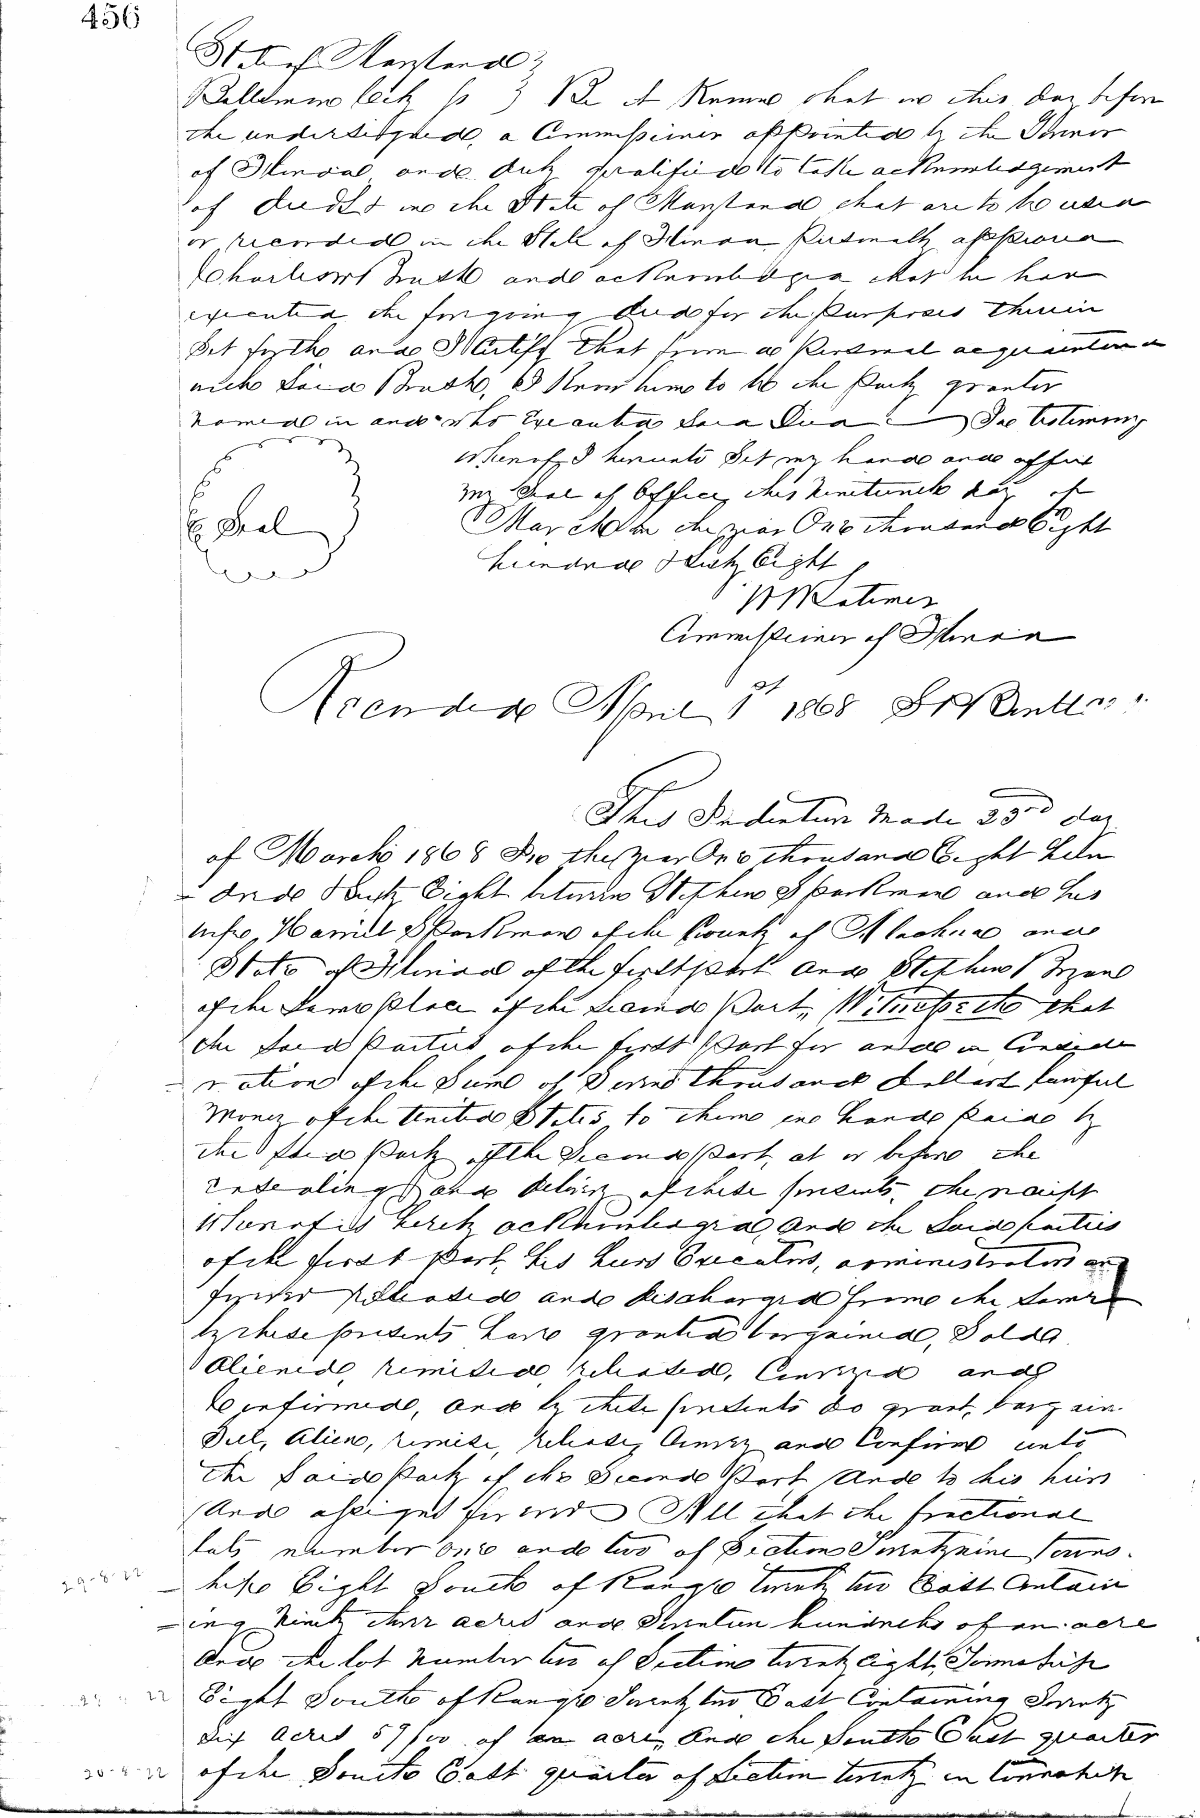 456
State of Maryland }
Baltimore City ss } Be it Known that on this day before
the undersigned, a Commissioner appointed by the Governor
of Florida and duly qualified to take acknowledgement
of deeds & in the State of Maryland that are to be used
or recorded in the State of Florida Personally appeared
Charles Brush and acknowledged that he had
executed the foregoing deed for the purposes therein
Set forth and I Certify that from a personal acquaintance
with Said Brush, I Know him to be the party grantor
named in and who Executed Said Deed In testimony
Whereof I hereunto Set my hand and affix
my Seal of Office this Nineteenth day of
March in the year One thousand Eight
hundred & Sixty Eight
Seal
Latimer
Commissioner of Florida
Recorded April 1st 1868
This Indenture Made 23rd day
of March 1868 In the year One thousand Eight hun
-dred & Sixty Eight between Stephen Sparkman and his
wife Harriet Sparkman of the County of Alachua and
State of Florida of the first part and Stephen Bryan
of the Same place of the Second Part, Witnesseth that
the Said Parties of the first Part for and in Conside
-ration of the Sum of Seven thousand dollars lawful
Money of the United States to them in hand paid by
the Said Party of the Second Part, at or before the
ensealing and delivery of these presents, the receipt
Whereof is hereby acknowledged, and the Said parties
of the first Part, his heirs Executors, administrators and
forever released and discharged from the Same
by these presents have granted bargained, Sold
Aliened, remised, released, Conveyed and
Confirmed, and by these presents do grant, bargain
Sell, Alien, remise, release, Convey and Confirm unto
the Said Party of the Second Part, And to his heirs
And assigns forever All that the fractional
lots number One and two of Section Twenty nine Towns-
29-8-22
-hip Eight South of Range twenty two East Contain
-ing Ninety three acres and Seventeen hundreths of an acre
And the lot Number two of Section twenty eight, Township
Eight South of Range Twenty two East Containing Seventy
Six Acres 57/100 of an acre, And the South East quarter
20-8-22
of the South East quarter of Section twenty in Township